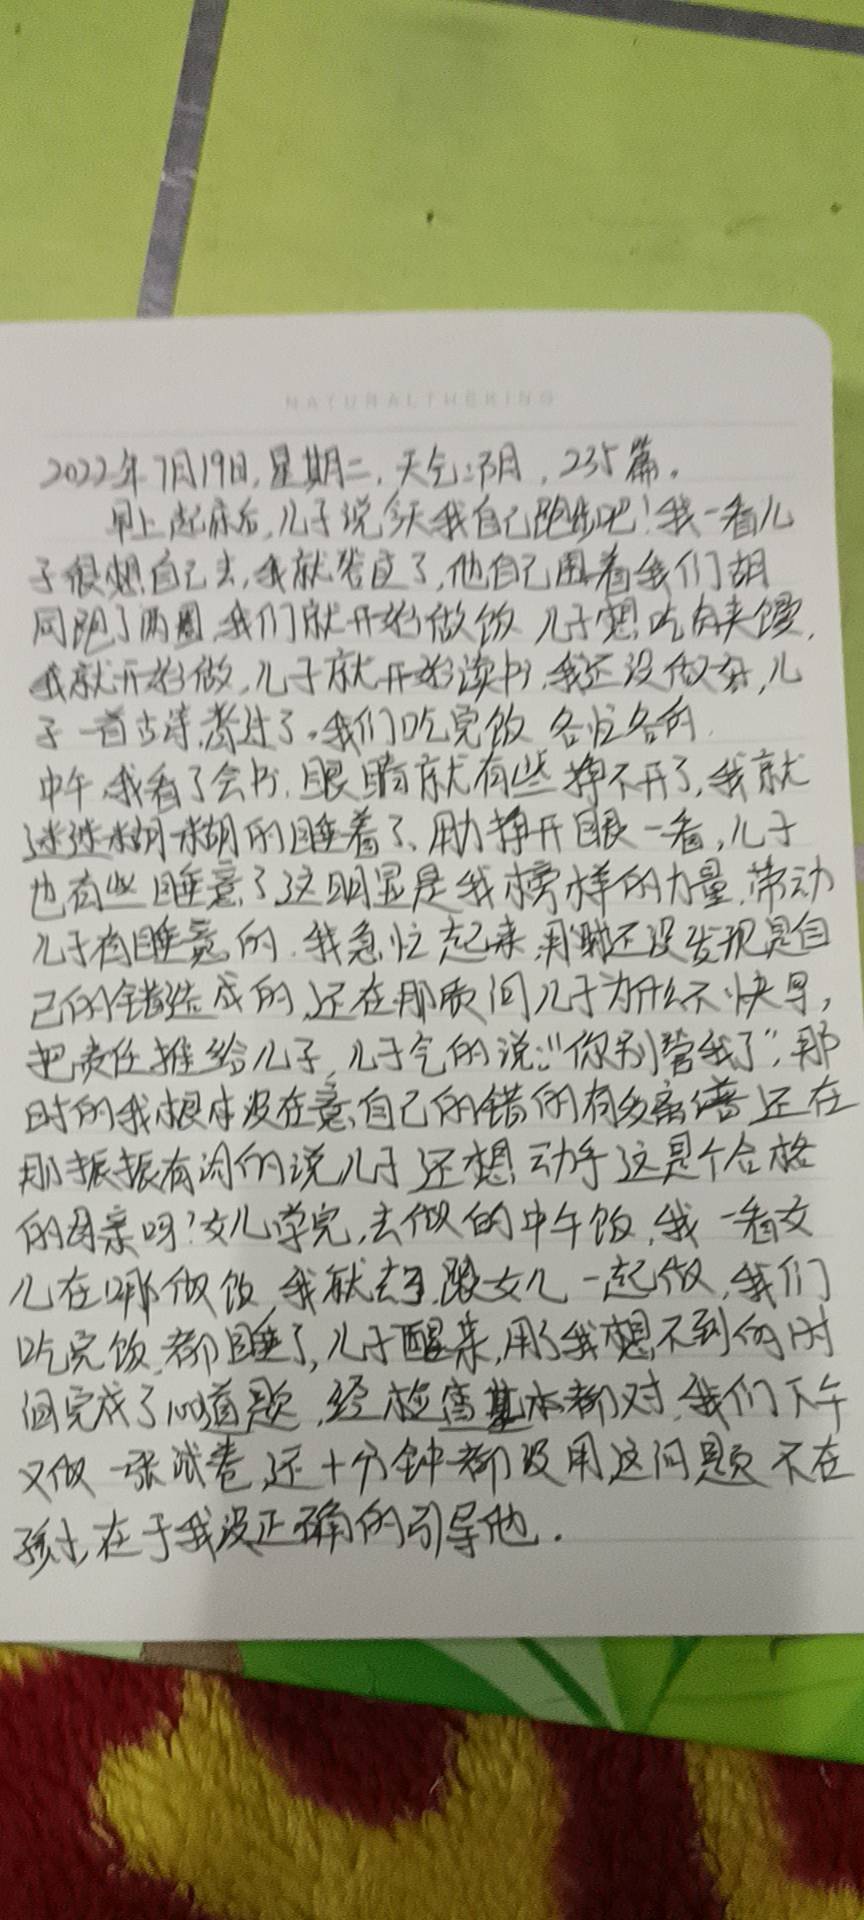 NATURALTHEKING
2022年7月19日,星期二,天气:阴,235篇。
早上起床后,儿子说今天我自己跑步吧!我一看儿
子很想自己去,我就答应了,他自己围着我们胡
同跑了两圈,我们就开始做饭 儿子想吃肉夹馍,
我就开始做,儿子就开始读书,我还没做好,儿
子一首古诗,考过了。我们吃完饭 各忙各的.
中午,我看了会书,眼睛就有些挣不开了,我就
迷迷糊糊的睡着了、用力挣开眼一看,儿子
也有些睡意了这明显是我榜样的力量,带动
儿子有睡意的.我急忙起来,那时还没发现是自
己的错造成的,还在那质问儿子为什么不快写,
把责任推给儿子,儿子气的说:"你别管我了",那
时的我根本没在意,自己的错的有多离谱 还在
那振振有词的说儿子还想动手这是个合格
的母亲吗?女儿学完,去做的中午饭,我一看女
儿在那做饭 我就去了跟女儿一起做,我们
吃完饭,都睡了,儿子醒来,用了我想不到的时
间完成了100道题,经检查基本都对,我们下午
又做一张试卷,还十分钟都没用这问题不在
孩子,在于我没正确的引导他.